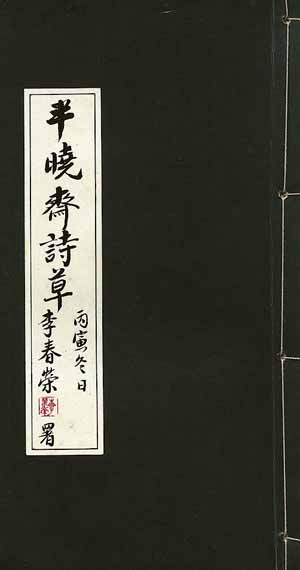 半曉齋詩草
丙寅冬日
李春榮
署